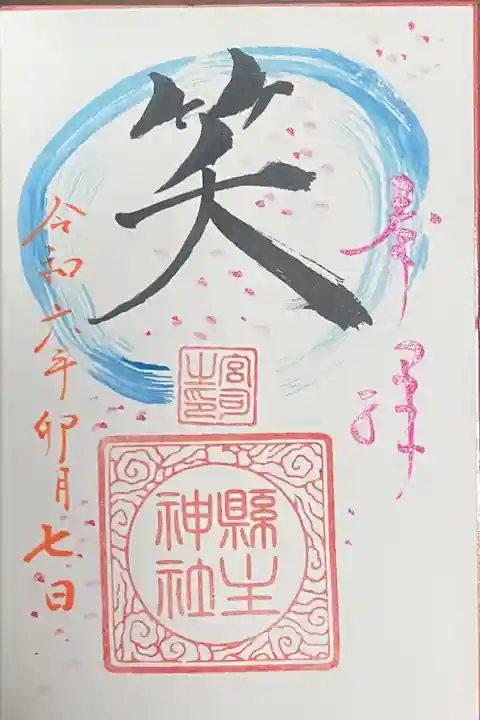 奉拝
笑
宮司
之印
縣主
神社
令和六年卯月七日